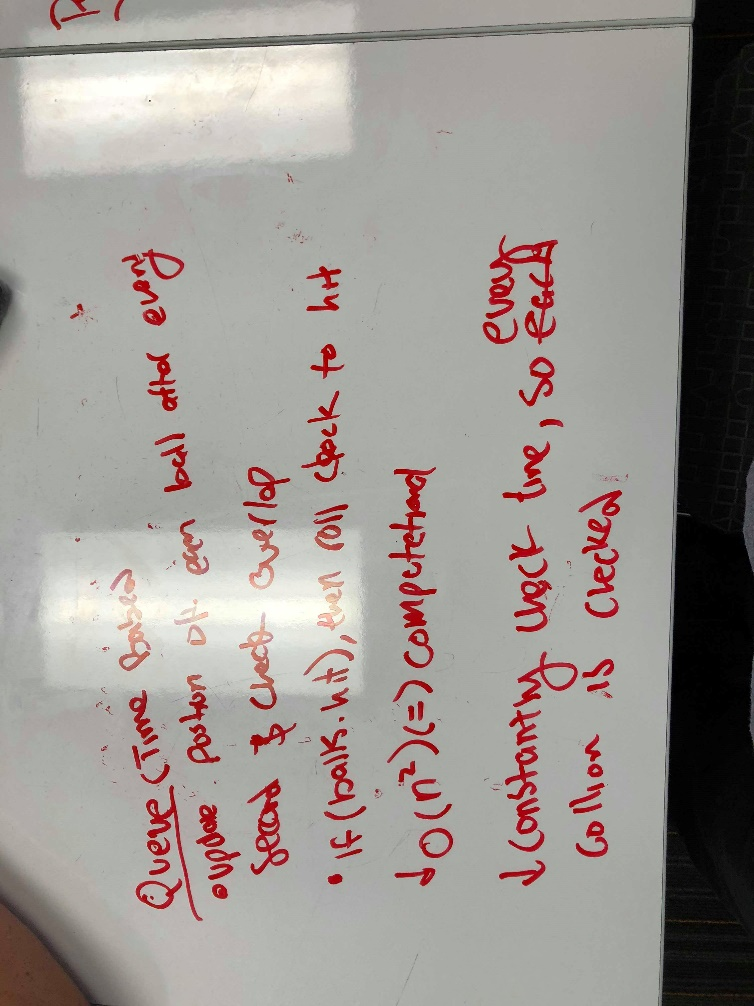 Queue (Time based)
• update position of each ball after every
second & check overlap
• If (balls.hit), then roll clock to hit
↓ O(n²) (=) computational
↓ Constantly check time, so every
collion is checked